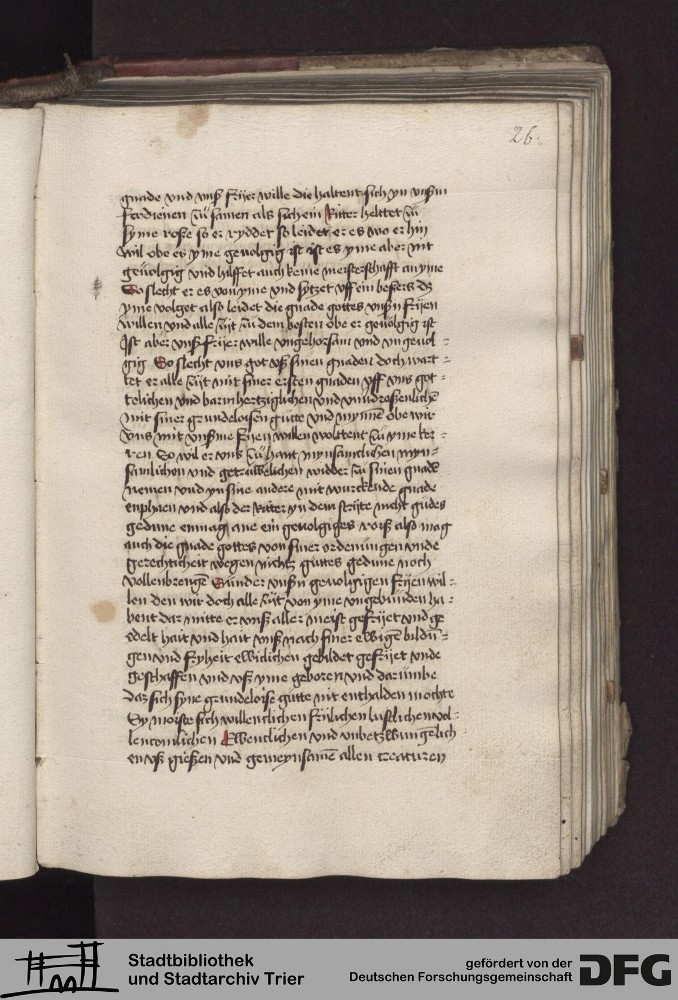 26
gnade vnd vnß frijer wille die haltent sich yn vnßm
ferdienen zů samen als sich ein Ritter heltet zů
syme roße so er ryddet so leidet er es wo er hin
wil obe es yme gevolgig ist ist es yme aber nit
gevolgig vnd hilffet auch keine meisterschafft an yme
So slecht er es von yme vnd sytzet vff ein beßers dz
yme volget also leidet die gnade gottes vnßn frijen
willen vnd alle zijt zů dem besten obe er gevolgig ist
Ist aber vnß frijer wille vngehorsam vnd vngevol-
gig So slecht vns got vß sinen gnaden doch wart-
tet er alle zijt mit siner ersten gnaden vff vns got-
telichen vnd barmhertziglichen vnd vnuerdroßenlichē
mit siner grundeloisen gutte vnd mynnē obe wir
vns mit vnßme frijen willen wolttent zů yme ker-
ren So wil er vns zů hant mynsamclichen myn-
samlichen vnd getruwelichen widder zů sinen gnadē
nemen vnd yn sine andere mit wurckende gnade
enphaen vnd also der Ritter yn dem strijte nicht gudes
gedune enmag ane ein gevolgiges roiß also mag
auch die gnade gottes von siner ordenungen vnde
gerechtickeit wegen nichtz guttes gedune noch
vollenbrengē Sunder vnßn gevolgigen frijen wil-
len den wir doch alle zijt von yme vngebunden ha-
bent dar mitte er vnß aller meist gefrijet vnd ge
edelt hait vnd hait vnß nach siner ewigē bildū-
gen vnd fryheit ewiclichen gebildet gefrijet vnde
geschaffen vnd vß yme geboren vnd darumbe
daz sich syne grundeloise gutte nit enthalden mochte
Sy moiste sich willenclichen frilichen lustlichen vol-
lencomlichen Ewenclichen vnd vnbetzwungelich
en vß gießen vnd gemeynsamē allen creaturen
Stadtbibliothek
und Stadtarchiv Trier
gefördert von der
Deutschen Forschungsgemeinschaft
DFG